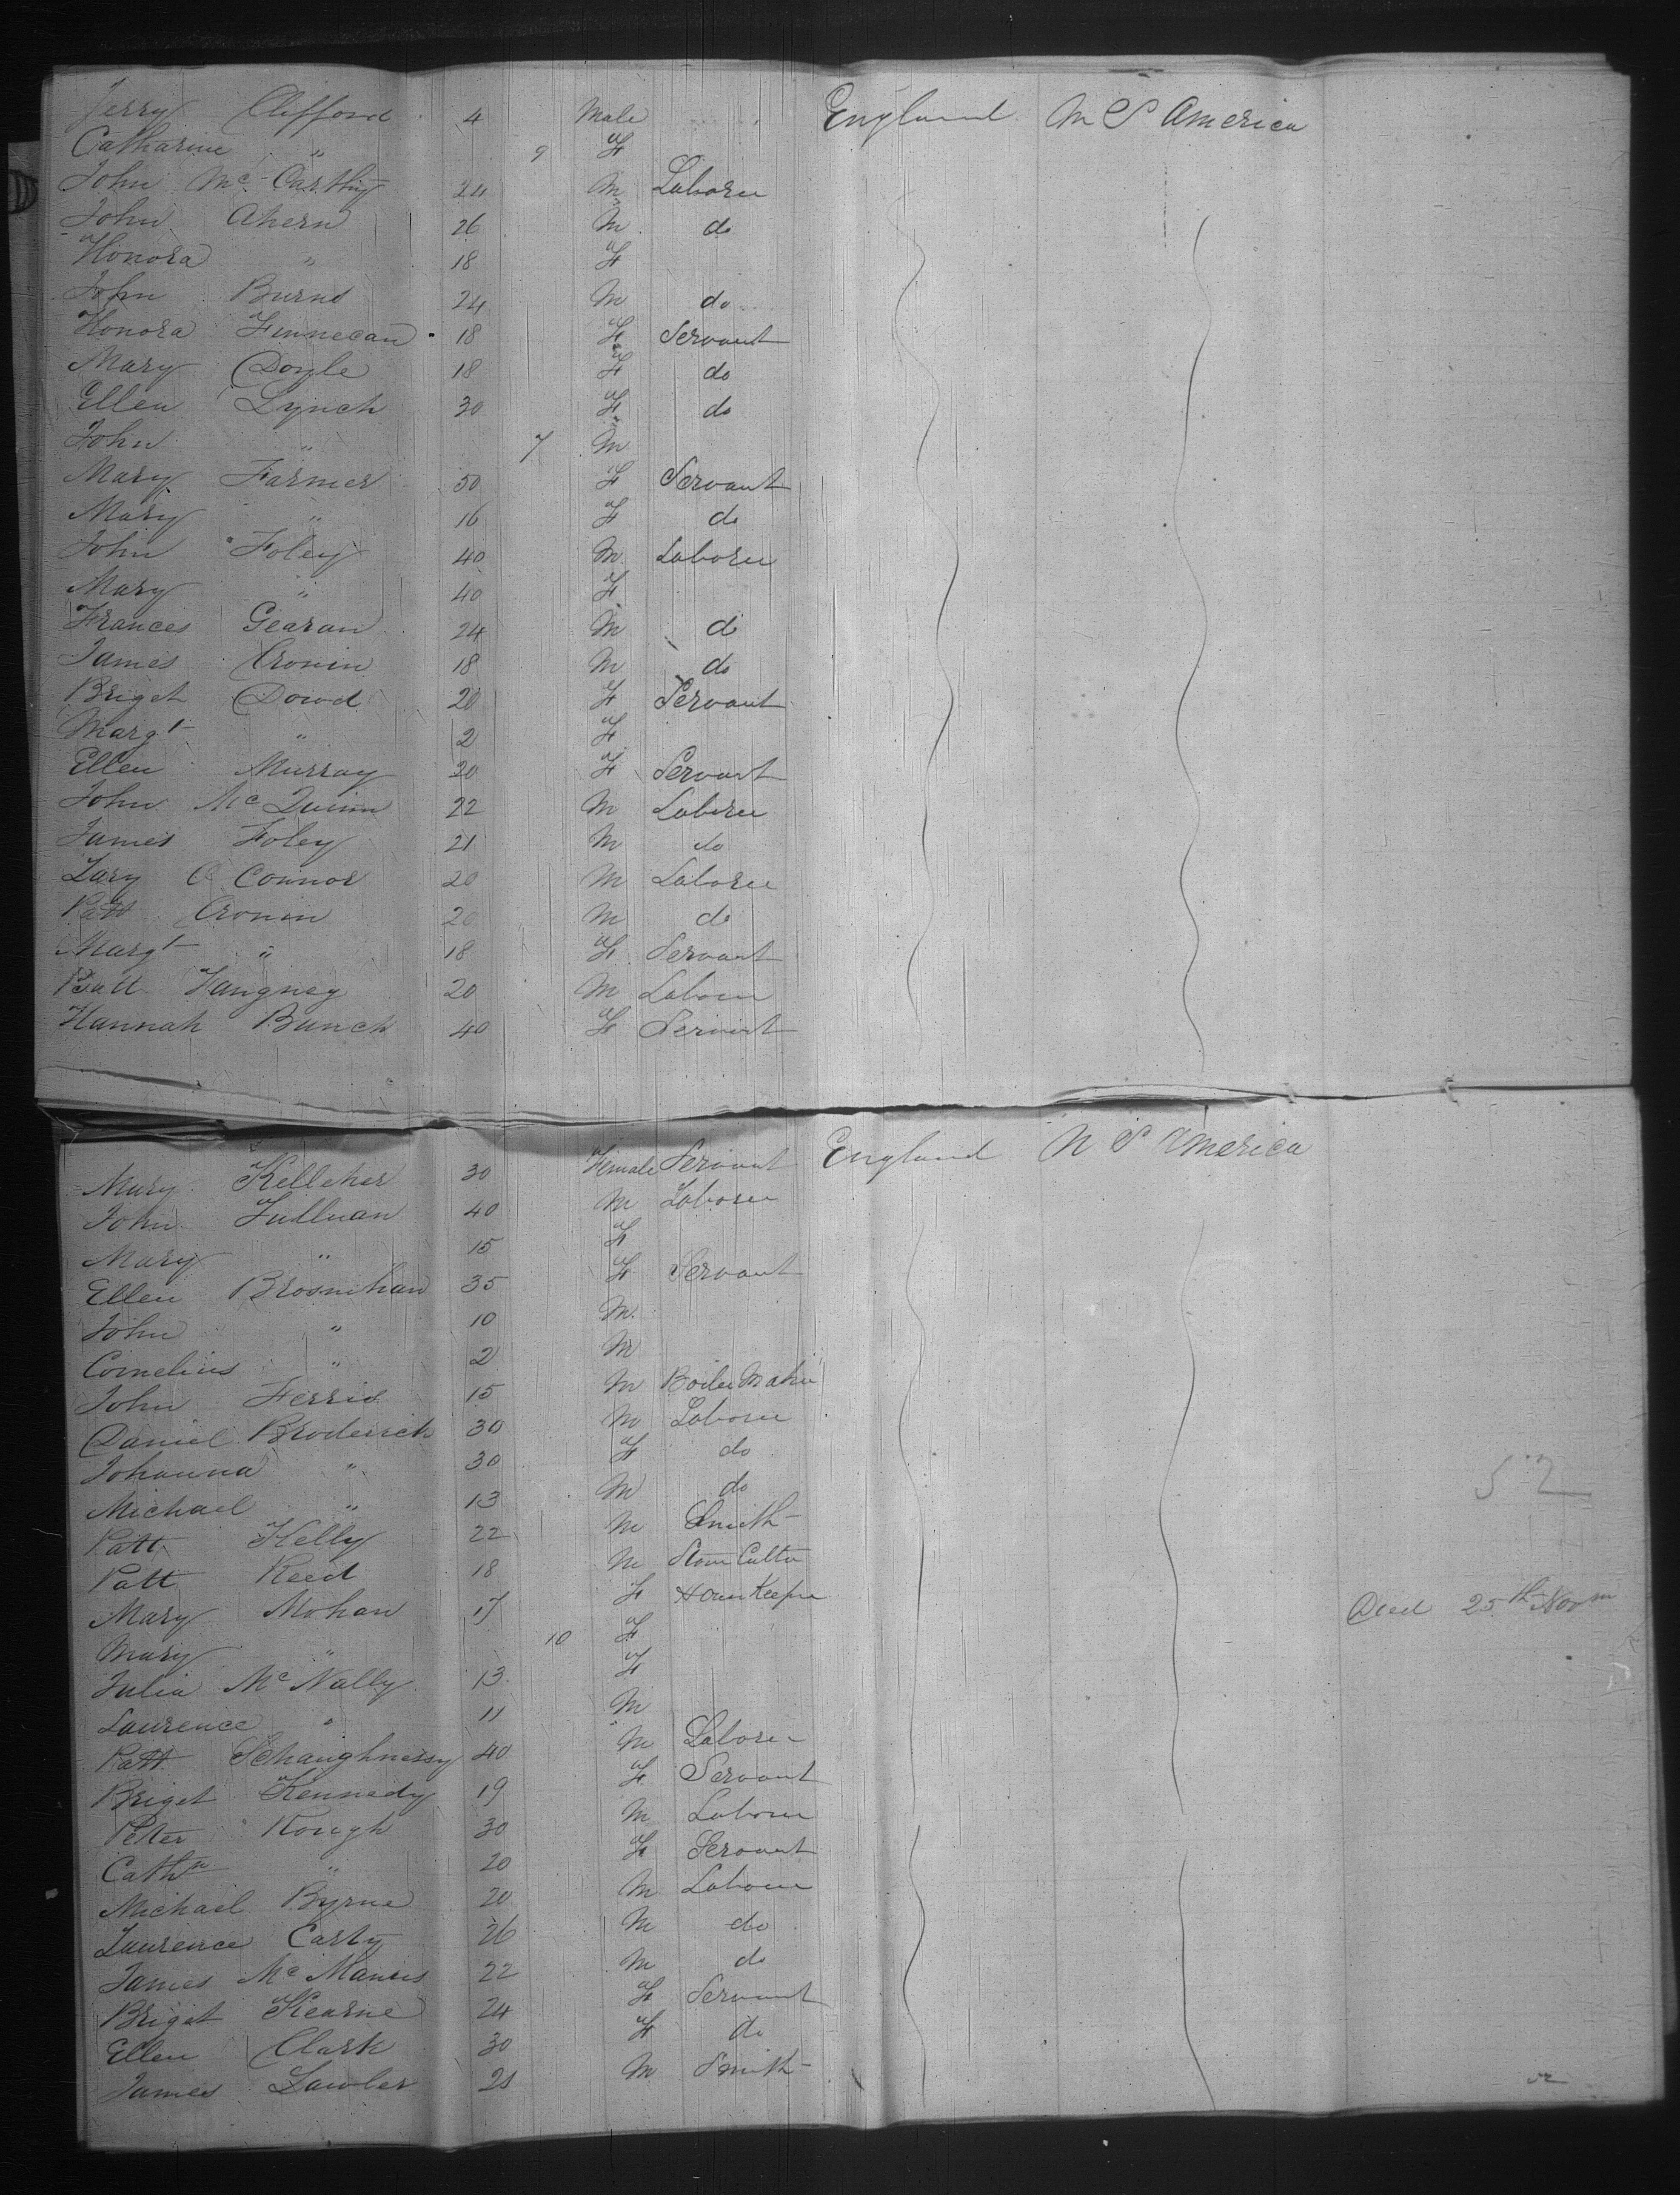 Jerry Clifford 4 Male England N S America
Catharine " 9 F
John Mc Carthy 24 M Laborer
John Ahern 26 M do
Honora " 18 F
John Burns 24 M do
Honora Finnecan 18 F Servant
Mary Doyle 18 F do
Ellen Lynch 30 F do
John " 7 M
Mary Farmer 50 F Servant
Mary " 16 F do
John Foley 40 M Laborer
Mary " 40 F
Frances Gearan 24 M do
James Cronin 18 M do
Briget Dowd 20 F Servant
Margt " 2 F
Ellen Murray 20 F Servant
John Mc Quinn 22 M Laborer
James Foley 21 M do
Lary O Connor 20 M Laborer
Patt Cronin 20 M do
Margt " 18 F Servant
Batt Hangney 20 M Laborer
Hannah Bunch 40 F Servant
Mary Kelleher 30 Female Servant England N S America
John Fulluan 40 M Laborer
Mary " 15 F
Ellen Brosnihan 35 F Servant
John " 10 M
Cornelius " 2 M
John Ferris 15 M Boiler Maker
Daniel Broderick 30 M Laborer
Johanna " 30 F do
Michael " 13 M do
52
Patt Kelly 22 M Smith
Patt Reed 18 M Stone Cutter
Mary Mohan 17 F House Keeper Died 25th Novm
Mary " 10 F
Julia Mc Nally 13 F
Laurence " 11 M
Patt Schaughnessy 40 M Laborer
Briget Kennedy 19 F Servant
Peter Kough 30 M Laborer
Cathn " 20 F Servant
Michael Byrne 20 M Laborer
Laurence Carty 26 M do
James Mc Manus 22 M do
Briget Kearne 24 F Servant
Ellen Clark 30 F do
James Lawler 21 M Smith
52